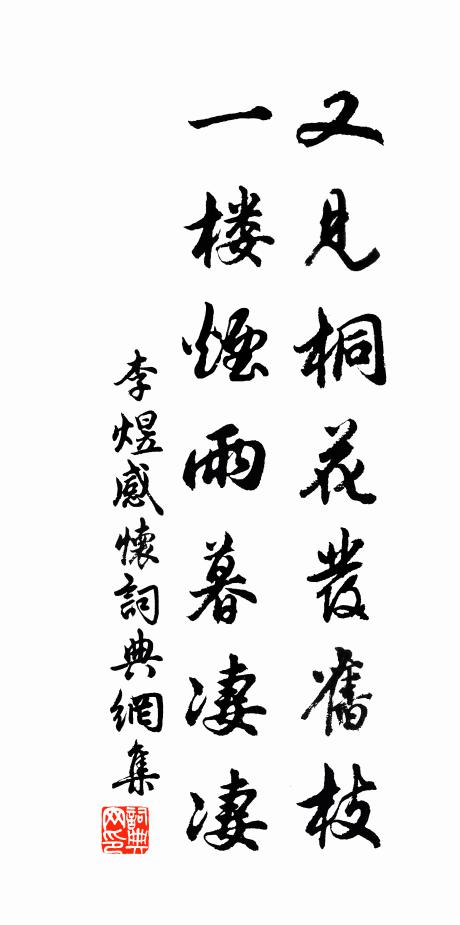 又見桐花發舊枝
一楼煙雨暮凄凄
李煜感懷詞典網集
詞典網印